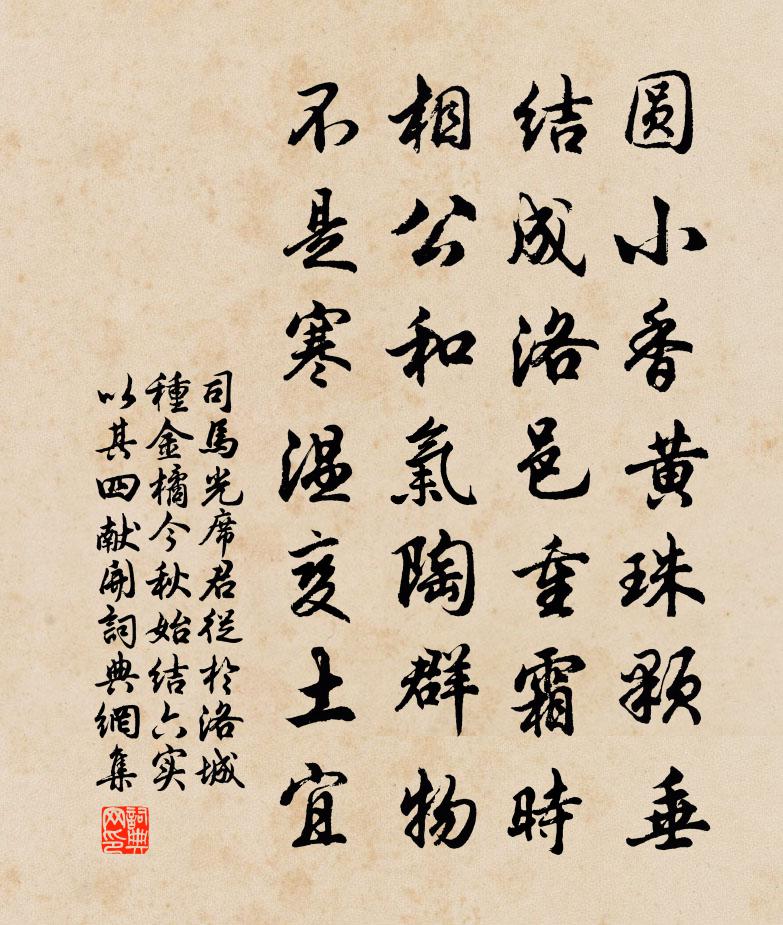 圆小香黄珠颗垂
结成洛邑重霜時
相公和氣陶群物
不是寒温变土宜
司馬光席君従於洛城
種金橘今秋始结六实
以其四献開詞典網集
詞典
网印